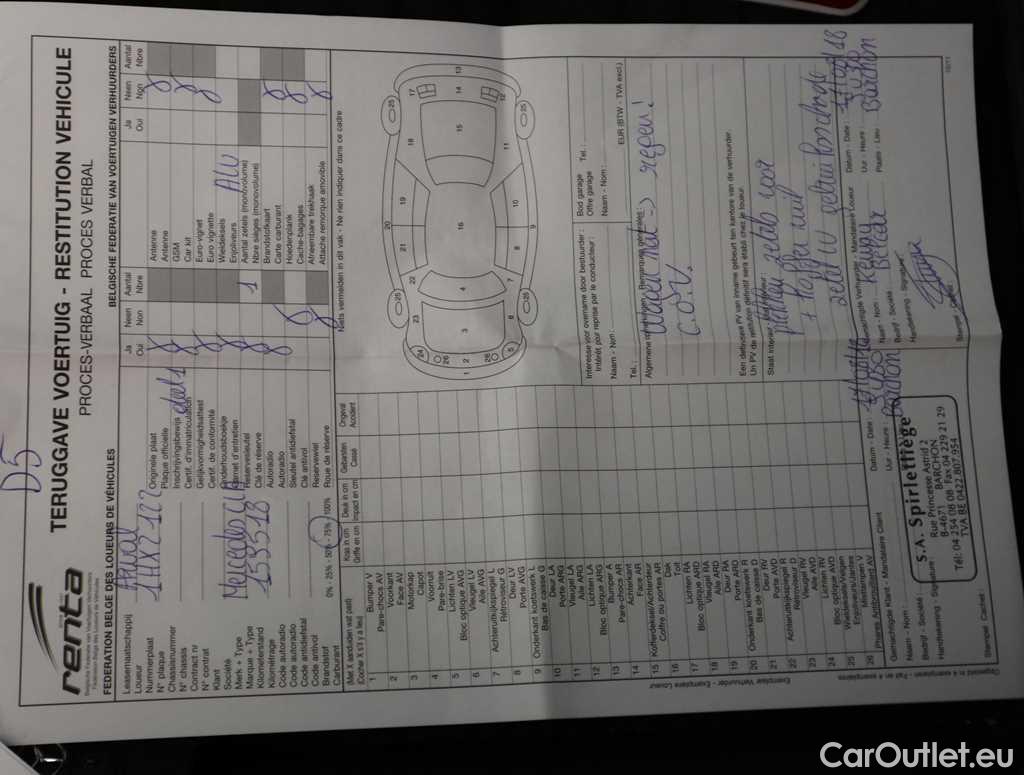 D5
renta
Belgische Federatie van Voertuigen Verhuurders
Fédération Belge des Loueurs de Véhicules
TERUGGAVE VOERTUIG - RESTITUTION VEHICULE
PROCES-VERBAAL PROCES VERBAL
FEDERATION BELGE DES LOUEURS DE VÉHICULES
BELGISCHE FEDERATIE VAN VOERTUIGEN VERHUURDERS
Leasemaatschappij
Loueur
Nummerplaat
N° plaque
Chassisnummer
N° chassis
Contract nr
N° contrat
Klant
Société
Merk + Type
Marque + Type
Mercedes
Kilometerstand
Kilométrage
155318
Code autoradio
Code autoradio
Code antidiefstal
Code antivol
Brandstof
Carburant
0% - 25% - 50% - 75% - 100%
Ja Neen Aantal
Oui Non Nbre
Originele plaat
Plaque officielle
Inschrijvingsbewijs
Certif. d'immatriculation
deels
Gelijkvormigheidsattest
Certif. de conformité
Onderhoudsboekje
Carnet d'entretien
Reservesleutel
Clé de réserve
1
Autoradio
Autoradio
Sleutel antidiefstal
Clé antivol
Reservewiel
Roue de réserve
Ja Neen Aantal
Oui Non Nbre
Antenne
Antenne
GSM
Car kit
Euro-vignet
Euro vignette
Wieldeksels
Enjoliveurs
ALU
Aantal zetels (monovolume)
Nbre sièges (monovolume)
Brandstofkaart
Carte carburant
Hoedenplank
Cache-bagages
Afneembare trekhaak
Attache remorque amovible
(Met X aanduiden wat past)
(Cocher X s'il y a lieu)
Kras in cm
Griffe en cm
Deuk in cm
Impact en cm
Gebarsten
Cassé
Ongeval
Accident
1 Bumper V
Pare-chocs AV
2 Voorkant
Face AV
3 Motorkap
Capot
4 Voorruit
Pare-brise
5 Lichten LV
Bloc optique AVG
6 Vleugel LV
Aile AVG
7 Achteruitkijkspiegel L
Rétroviseur G
8 Deur LV
Porte AVG
9 Onderkant koetswerk L
Bas de caisse G
10 Deur LA
Porte ARG
11 Vleugel LA
Aile ARG
12 Lichten LA
Bloc optique ARG
13 Bumper A
Pare-chocs AR
14 Achterkant
Face AR
15 Kofferdeksel/Achterdeur
Coffre ou portes AR
16 Dak
Toit
17 Lichten RA
Bloc optique ARD
18 Vleugel RA
Aile ARD
19 Deur RA
Porte ARD
20 Onderkant koetswerk R
Bas de caisse D
21 Deur RV
Porte AVD
22 Achteruitkijkspiegel R
Rétroviseur D
23 Vleugel RV
Aile AVD
24 Lichten RV
Bloc optique AVD
25 Wieldeksels/Velgen
Enjoliveurs/Jantes
26 Mistlampen V
Phares Antibrouillard AV
Niets vermelden in dit vak - Ne rien indiquer dans ce cadre
Interesse voor overname door bestuurder :
Intérêt pour reprise par le conducteur :
Naam - Nom :
Tel. :
Bod garage
Offre garage
Tel. :
Naam - Nom :
EUR (BTW - TVA excl.)
Algemene opmerkingen - Remarques générales :
wagen nat => regen!
C.O.V.
Een definitieve PV van inname gebeurt ten kantore van de verhuurder.
Un PV de restitution définitif sera établi chez le loueur.
Staat interieur
zetels voor
+ koffer vuil
Datum - Date :
Uur - Heure :
Barchon
Gemachtigde Klant - Mandataire Client
Naam - Nom :
Bedrijf - Société :
Handtekening - Signature :
Stempel - Cachet :
S.A. Spirletliège
Rue Princesse Astrid 2
B-4671 BARCHON
Tél: 04 254 08 08 Fax 04 229 21 29
TVA BE 0422 807 954
Gemachtigde Verhuurder - Mandataire Loueur
Naam - Nom :
Bedrijf - Société :
Handtekening - Signature :
Stempel - Cachet :
Datum - Date :
Uur - Heure :
Plaats - Lieu : Barchon
Exemplaar Verhuurder - Exemplaire Loueur
Opgesteld in 4 exemplaren - Fait en 4 exemplaires
10/11
CarOutlet.eu